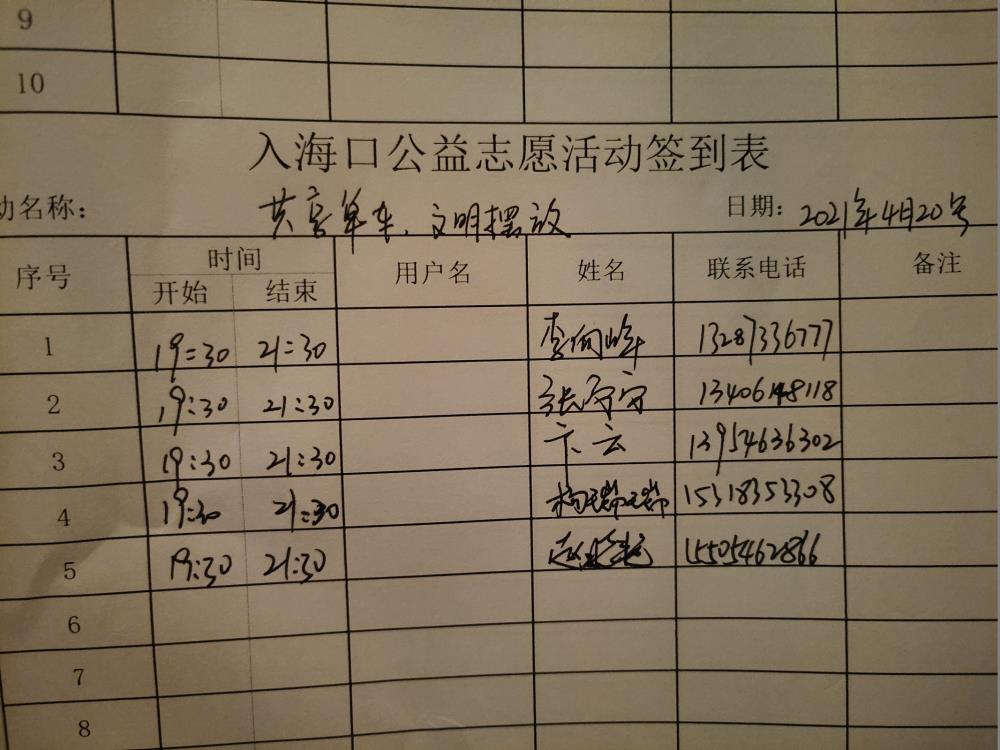 9
10
入海口公益志愿活动签到表
动名称: 共享单车、文明摆放 日期: 2021年4月20号
序号 时间 用户名 姓名 联系电话 备注
开始 结束
1 19:30 21:30 李向峰 13287336777
2 19:30 21:30 张守守 13406148118
3 19:30 21:30 卞云 13954636302
4 19:30 21:30 杨瑞瑞 15318353308
5 19:30 21:30 赵 15505462866
6
7
8